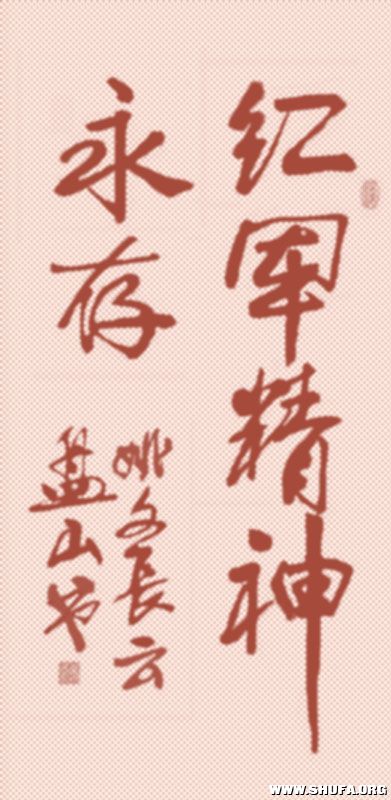 红军精神
永存
姚文长云
盘山书
WWW.SHUFA.ORG